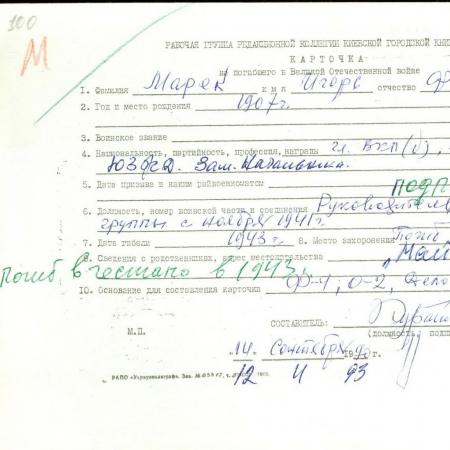 100
М
РАБОЧАЯ ГРУППА РЕДАКЦИОННОЙ КОЛЛЕГИИ КИЕВСКОЙ ГОРОДСКОЙ КНИ
КАРТОЧКА
на погибшего в Великой Отечественной войне
1. Фамилия Марек имя Игорь отчество
2. Год и место рождения 1907г.
3. Воинское звание
4. Национальность, партийность, профессия, награды чл. ВКП(б),
ЮЗЖД. Зам. Начальника.
5. Дата призыва и каким райвоенкоматом
6. Должность, номер воинской части и соединения Руководитель
группы с ноября 1941г.
7. Дата гибели 1943г. 8. Место захоронения
9. Сведения о родственниках, адрес местожительства
Погиб в гестапо в 1943г.
10. Основание для составления карточки Ф-1, О-2, Дело
СОСТАВИТЕЛЬ:
(должность, подп
М.П.
14 Сентября 1990г.
12 4 93